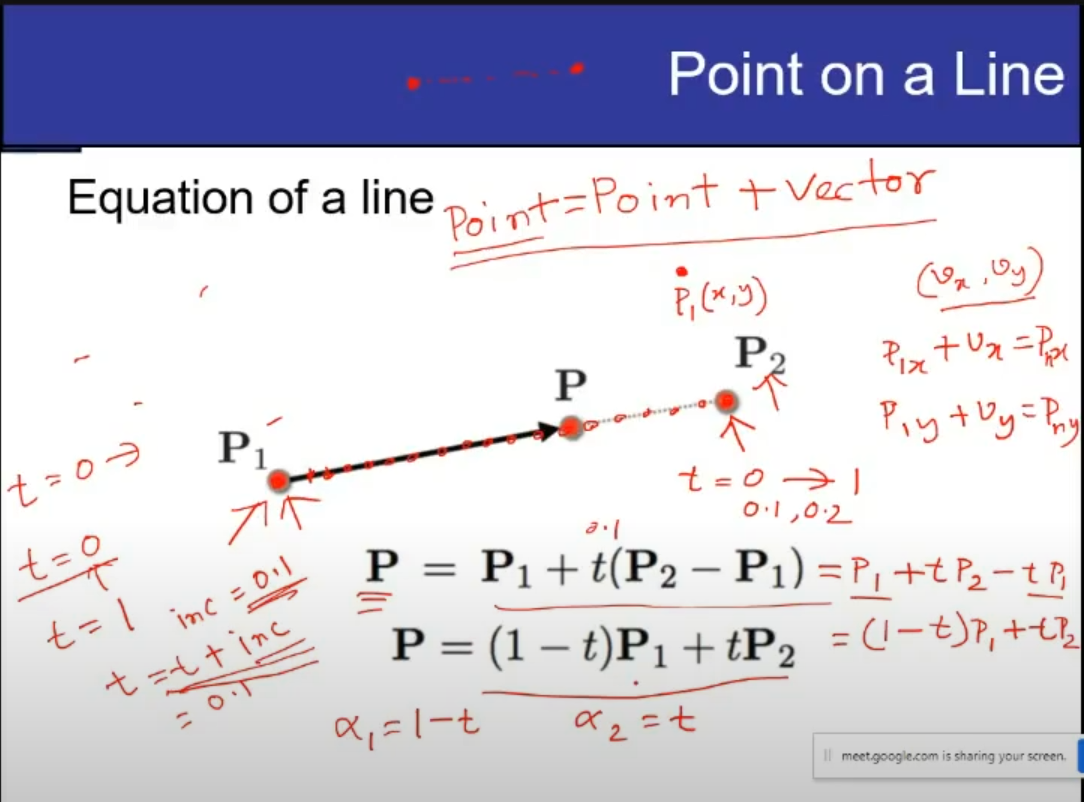 Point on a Line
Equation of a line
Point = Point + vector
P₁(x,y)
(vx, vy)
P₁x + vx = Pnx
P₁y + vy = Pny
P₂
P
P₁
t = 0 →
t = 0 → 1
0.1, 0.2
t = 0
t = 1
inc = 0.1
t = t + inc
= 0.1
0.1
P = P₁ + t(P₂ − P₁) = P₁ + tP₂ − tP₁
P = (1 − t)P₁ + tP₂ = (1−t)P₁ + tP₂
α₁ = 1−t α₂ = t
meet.google.com is sharing your screen.